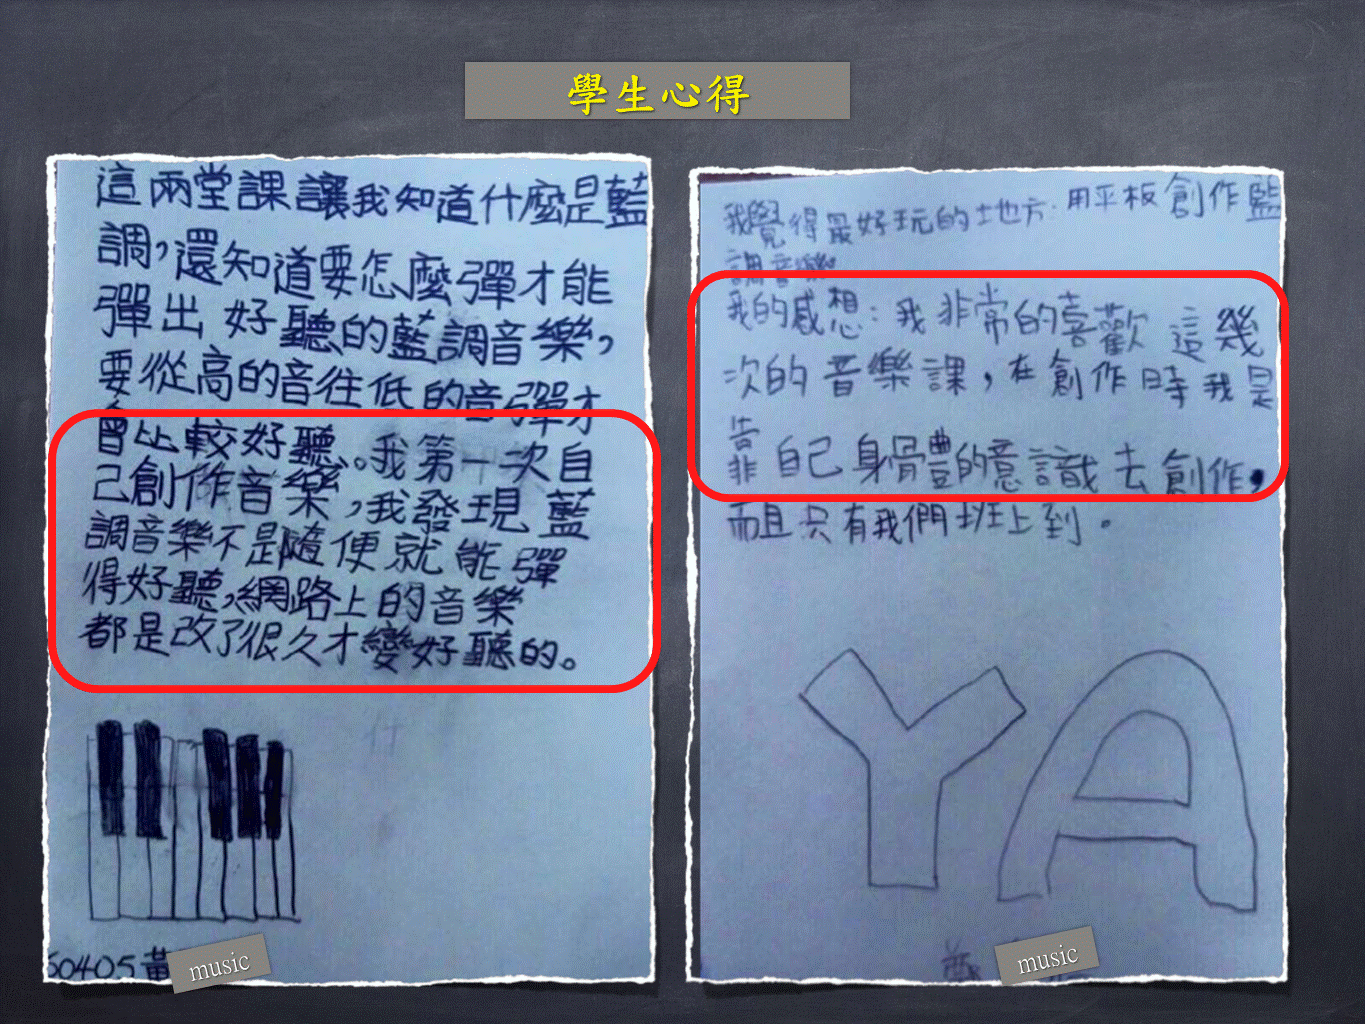 學生心得
這兩堂課讓我知道什麼是藍
調，還知道要怎麼彈才能
彈出好聽的藍調音樂，
要從高的音往低的音彈才
會比較好聽。我第一次自
己創作音樂，我發現藍
調音樂不是隨便就能彈
得好聽，網路上的音樂
都是改了很久才變好聽的。
50405黃
music
我覺得最好玩的地方：用平板創作藍
調音樂
我的感想：我非常的喜歡這幾
次的音樂課，在創作時我是
靠自己身骨豊的意識去創作，
而且只有我們班上到。
YA
music